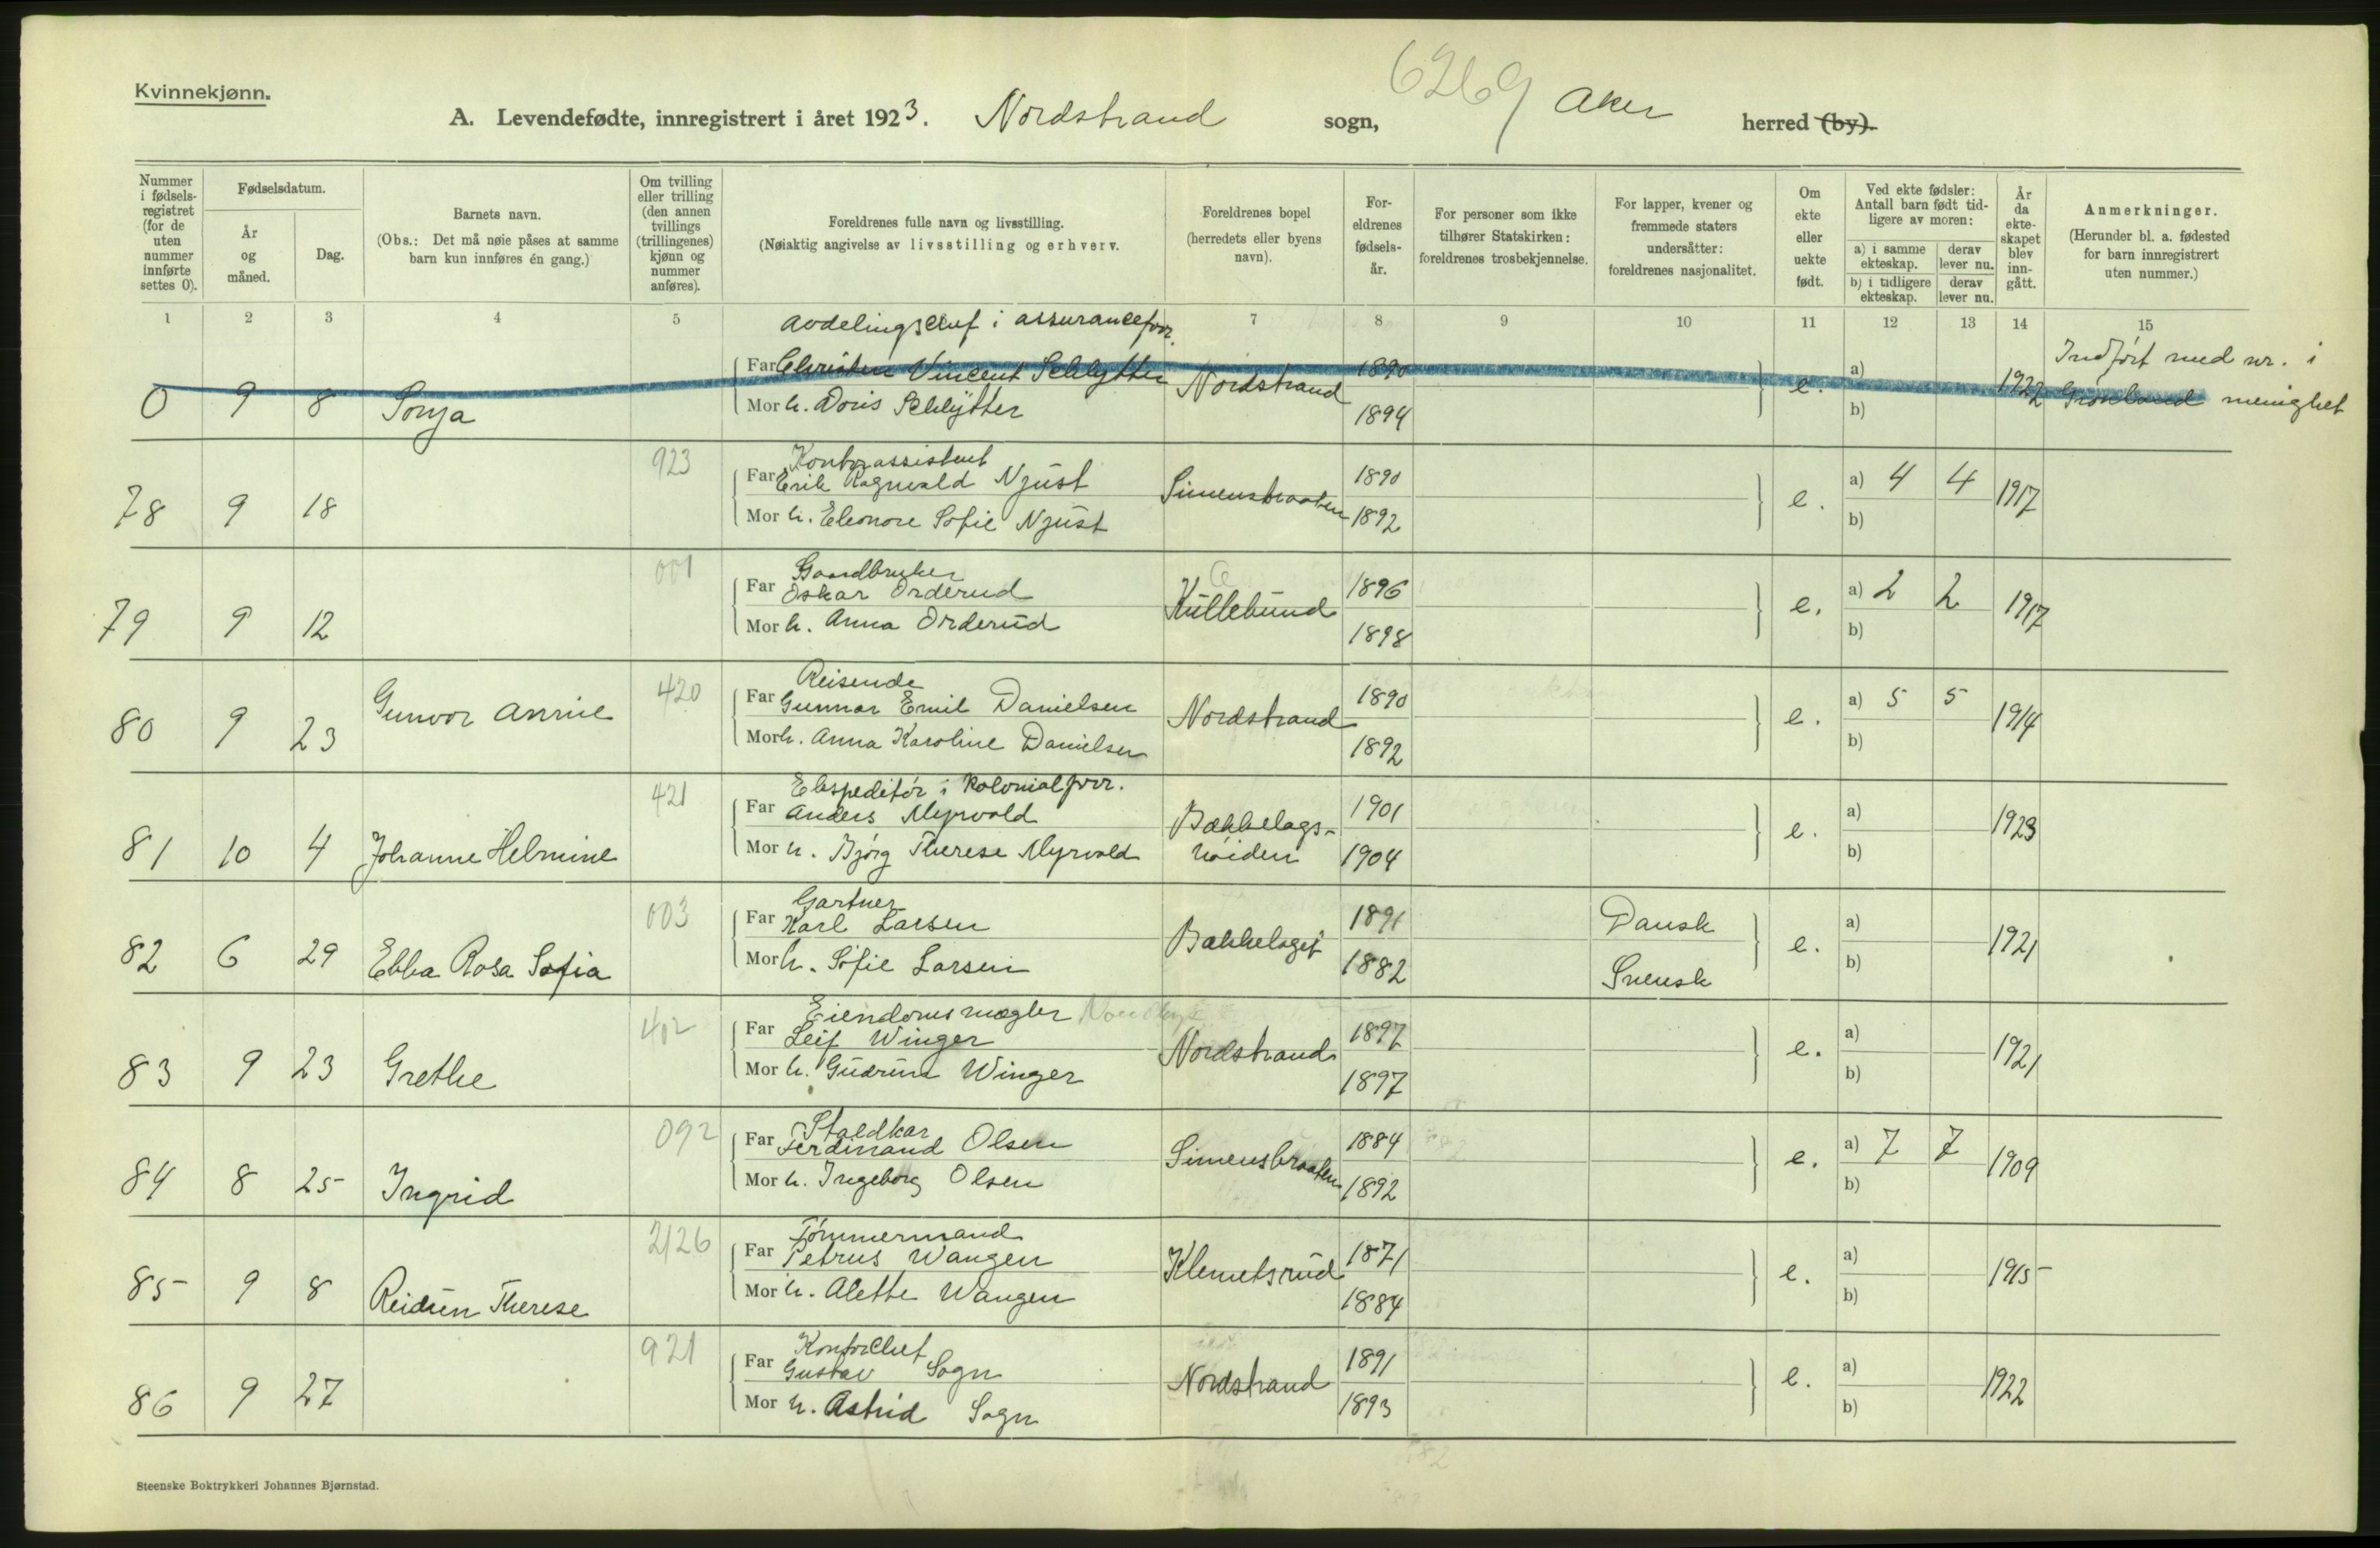 Kvinnekjønn.
6269
A. Levendefødte, innregistrert i året 1923. Nordstrand sogn, Aker herred (by).
Nummer i fødselsregistret (for de uten nummer innførte settes 0).
Fødselsdatum.
År og måned.
Dag.
Barnets navn.
(Obs.: Det må nøie påses at samme barn kun innføres én gang.)
Om tvilling eller trilling (den annen tvillings (trillingenes) kjønn og nummer anføres).
Foreldrenes fulle navn og livsstilling.
(Nøiaktig angivelse av livsstilling og erhverv.
Foreldrenes bopel (herredets eller byens navn).
Foreldrenes fødselsår.
For personer som ikke tilhører Statskirken: foreldrenes trosbekjennelse.
For lapper, kvener og fremmede staters undersåtter: foreldrenes nasjonalitet.
Om ekte eller uekte født.
Ved ekte fødsler: Antall barn født tidligere av moren:
a) i samme ekteskap. derav lever nu.
b) i tidligere ekteskap. derav lever nu.
År da ekteskapet blev inngått.
Anmerkninger.
(Herunder bl. a. fødested for barn innregistrert uten nummer.)
1 2 3 4 5 7 8 9 10 11 12 13 14 15
Avdelingschef i assuranceforr.
Far Christen Vincent Schlytter Nordstrand 1890 e. a) 1922 Indført med nr. i
0 9 8 Sonja Mor h. Doris Schlytter 1894 b) Grønland menighet
923 Kontorassistent
Far Erik Ragnvald Njust Simensbraaten 1890 a) 4 4 1917
78 9 18 Mor h. Eleonore Sofie Njust 1892 e. b)
001 Gaardbruker
Far Oskar Orderud Kullebund 1896 e. a) 2 2 1917
79 9 12 Mor h. Anna Orderud 1898 b)
420 Reisende
Gunvor Annie Far Gunnar Emil Danielsen Nordstrand 1890 e. a) 5 5 1914
80 9 23 Mor h. Anna Karoline Danielsen 1892 b)
421 Ekspeditør i kolonialforr.
Far Anders Myrvold Bækkelags- 1901 e. a) 1923
81 10 4 Johanne Helmine Mor h. Bjørg Therese Myrvold høiden 1904 b)
003 Gartner
Far Karl Larsen Bækkelaget 1891 Dansk e. a) 1921
82 6 29 Ebba Rosa Sofia Mor h. Sofie Larsen 1882 Svensk b)
402 Eiendomsmægler
Far Leif Winger Nordstrand 1897 e. a) 1921
83 9 23 Grethe Mor h. Gudrun Winger 1897 b)
092 Staldkar
Far Ferdinand Olsen Simensbraaten 1884 e. a) 7 7 1909
84 8 25 Ingrid Mor h. Ingeborg Olsen 1892 b)
2126 Tømmermand
Far Petrus Wangen Klemetsrud 1871 e. a) 1915
85 9 8 Reidun Therese Mor h. Alette Wangen 1884 b)
921 Kontorchef
Far Gustav Sogn Nordstrand 1891 e. a) 1922
86 9 27 Mor h. Astrid Sogn 1893 b)
Steenske Boktrykkeri Johannes Bjørnstad.